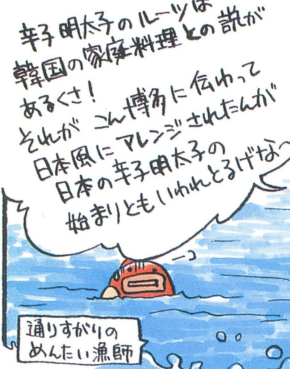 辛子明太子のルーツは
韓国の家庭料理との説が
あるくさ!
それがこん博多に伝わって
日本風にアレンジされたんが
日本の辛子明太子の
始まりともいわれとるげな〜
通りすがりの
めんたい漁師